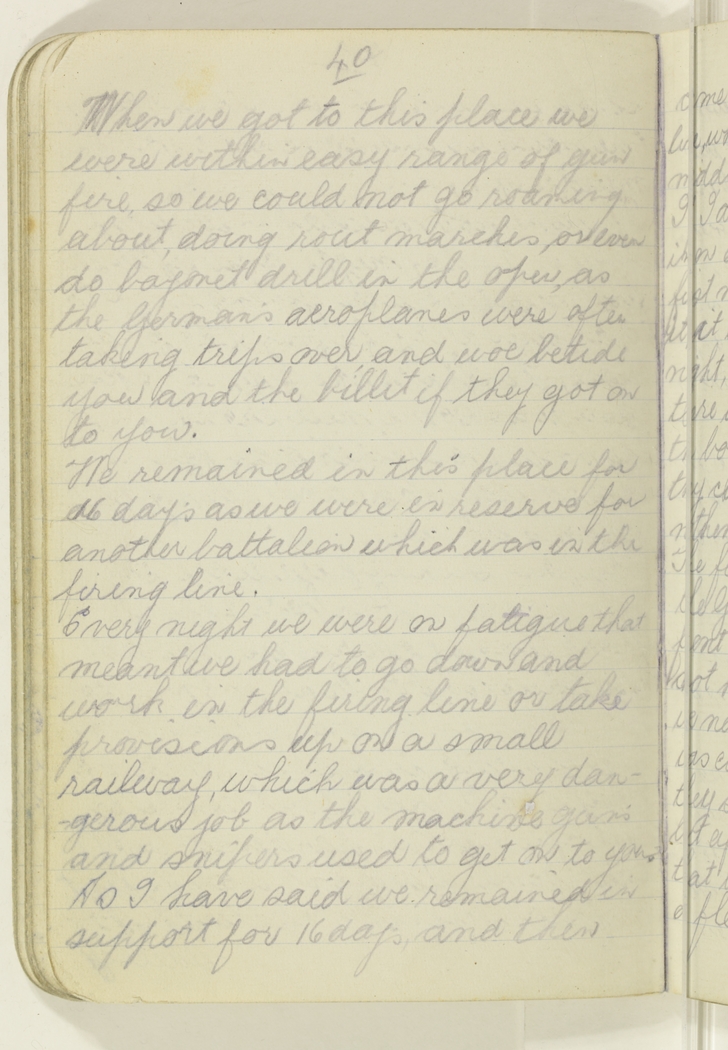 40
When we got to this place we
were within easy range of gun
fire, so we could not go roaming
about, doing rout marches, or even
do bayonet drill in the open, as
the German's aeroplanes were often
taking trips over and woe betide
you and the billet if they got on
to you.
We remained in this place for
16 days as we were in reserve for
another battalion which was in the
firing line.
Every night we were on fatigue that
meant we had to go down and
work in the firing line or take
provisions up on a small
railway, which was a very dan-
-gerous job as the machine guns
and snipers used to get on to you.
As I have said we remained in
support for 16 days, and then